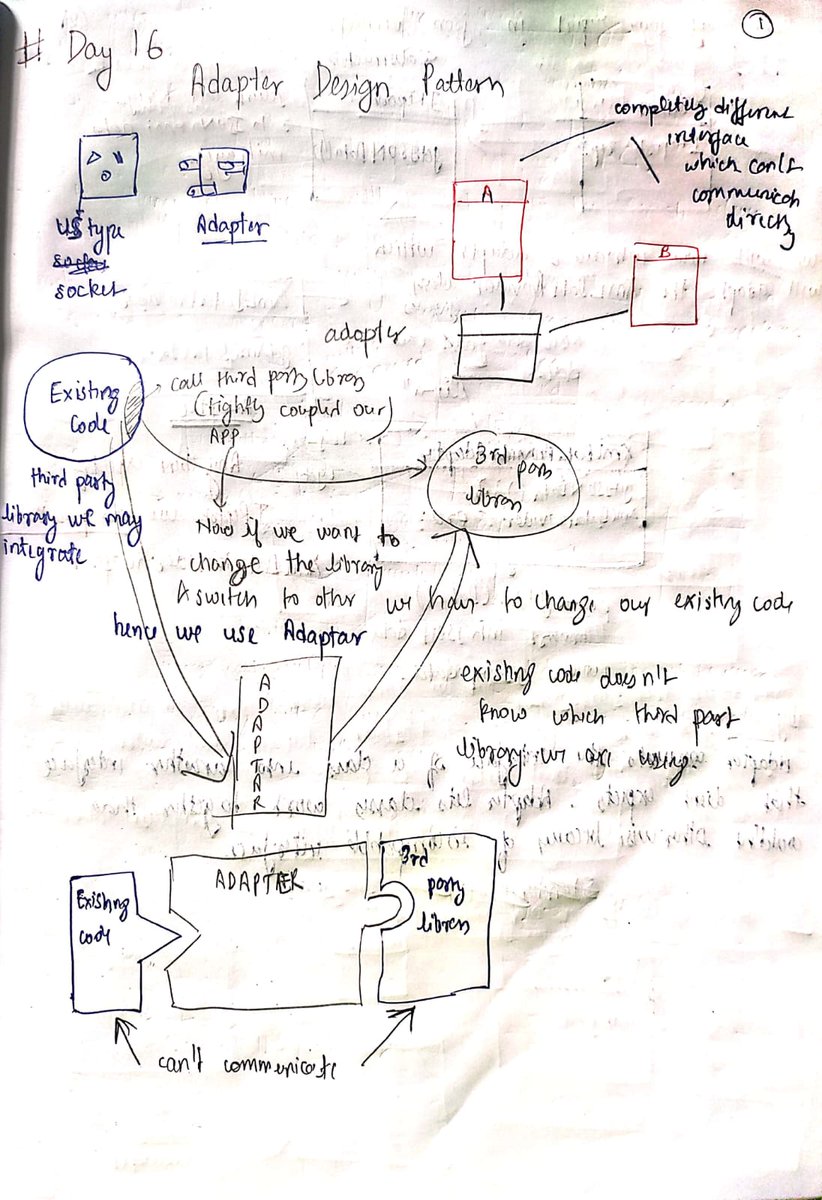 1
# Day 16
Adapter Design Pattern
US type
socket
Adapter
completely different
interface
which can't
communicate
directly
A
B
adapter
Existing
Code
call third party library
(Tightly coupled our)
APP
third party
library we may
integrate
3rd party
library
Now if we want to
change the library
& switch to other we have to change our existing code
hence we use Adaptar
ADAPTAR
existing code doesn't
know which third part
library we are using.
Existing
code
ADAPTER
3rd
party
library
can't communicate